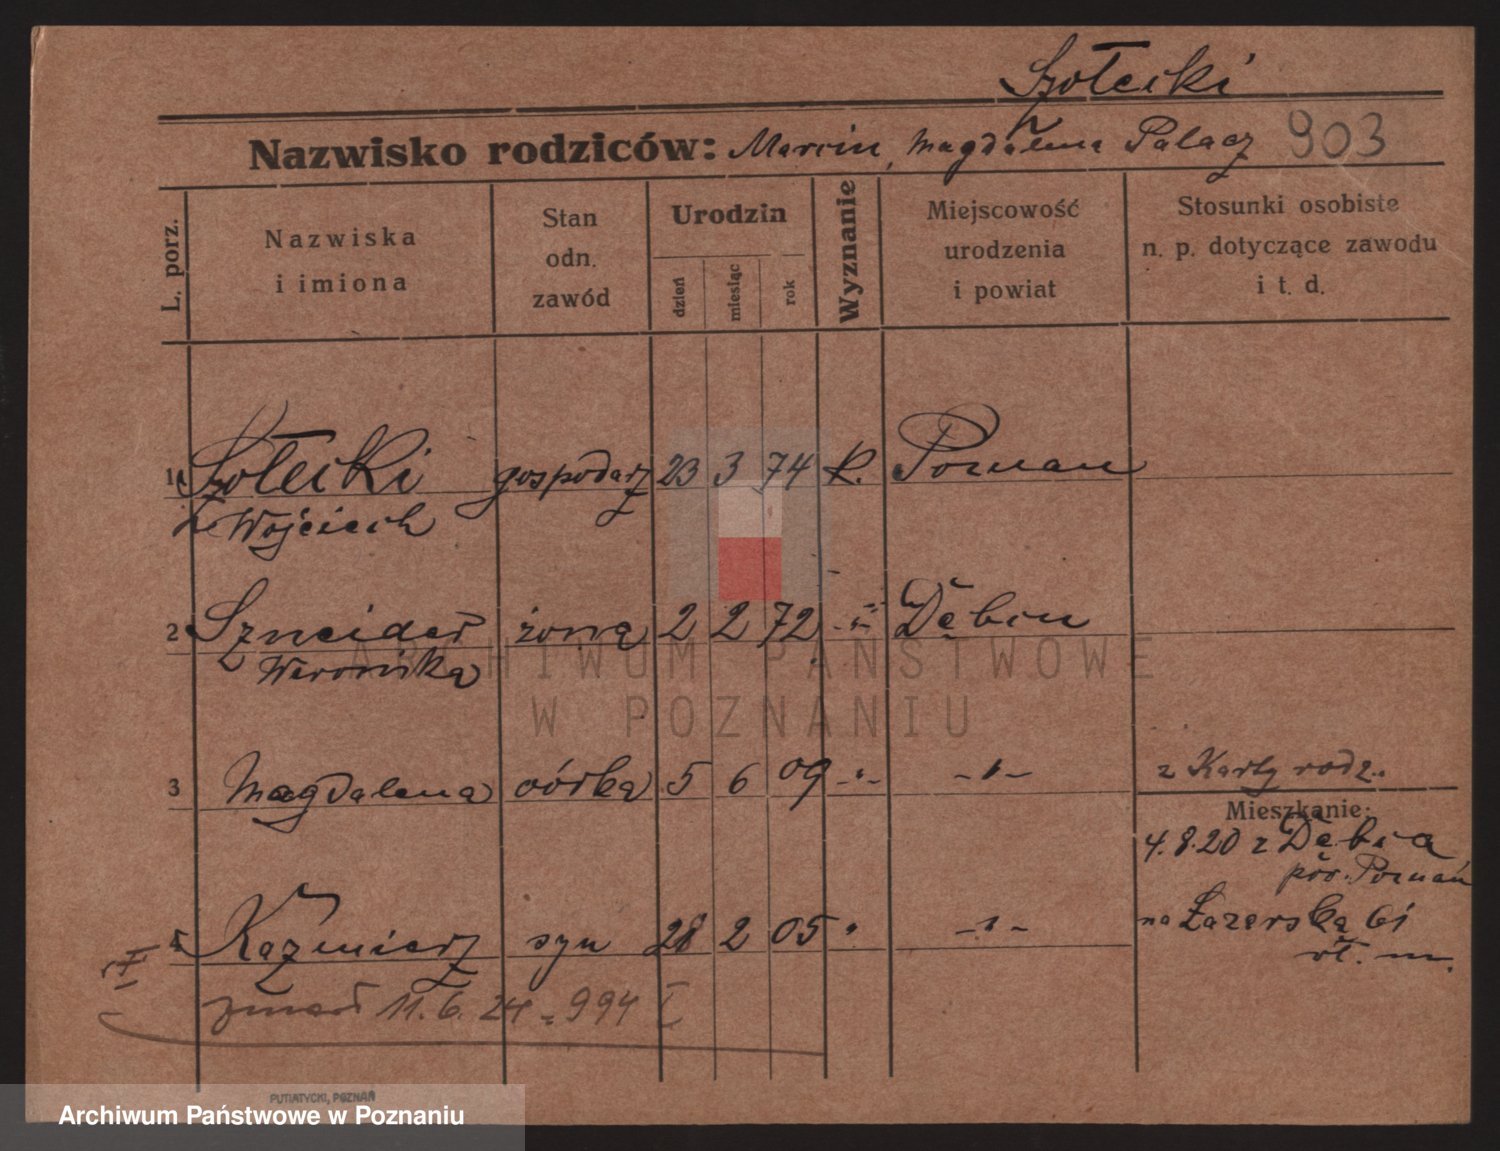 Szołecki
Nazwisko rodziców: Marcin, Magdalena Palacz 903
L. porz.
Nazwiska i imiona
Stan odn. zawód
Urodzin
dzień
miesiąc
rok
Wyznanie
Miejscowość urodzenia i powiat
Stosunki osobiste n. p. dotyczące zawodu i t. d.
1 Szołecki gospodarz 23 3 74 k. Poznan
Wojciech
2 Szneider żona 2 2 72 -"- Dębiu
Weronika
3 Magdalena córka 5 6 09 -"- -"- z Karty rodz.
Mieszkanie:
4.8.20 z Dębca
pow. Poznań
4 Kazmierz syn 28 2 05 " -"- na Łazerska 61
wł. m.
I
zmarł 11.6.24 - 994 I
PUTIATYCKI, POZNAŃ
ARCHIWUM PAŃSTWOWE
W POZNANIU
Archiwum Państwowe w Poznaniu